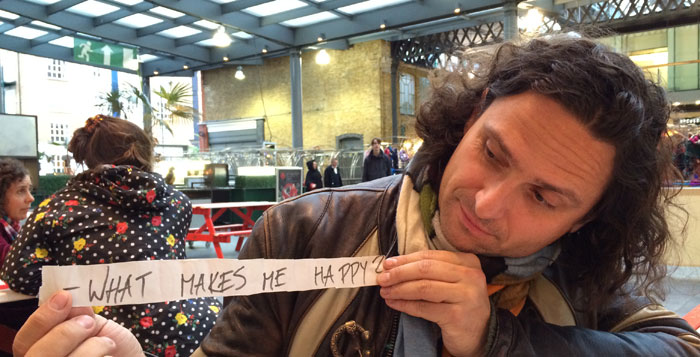 - WHAT MAKES ME HAPPY?